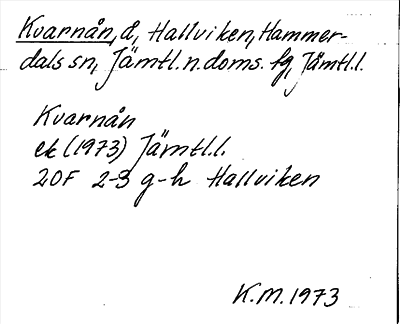 Kvarnån, å, Hallviken, Hammer-
dals sn, Jämtl. n. doms. fg, Jämtl. l.
Kvarnån
ek (1973) Jämtl. l.
20F 2-3 g-h Hallviken
K.M. 1973